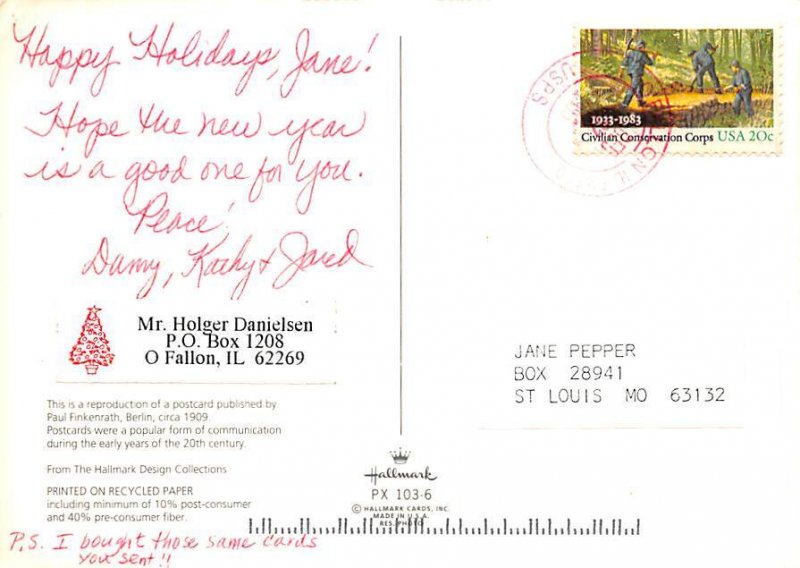 Happy Holidays, Jane!
Hope the new year
is a good one for you.
Peace!
Danny, Kathy & Jared
Mr. Holger Danielsen
P.O. Box 1208
O Fallon, IL 62269
This is a reproduction of a postcard published by
Paul Finkenrath, Berlin, circa 1909.
Postcards were a popular form of communication
during the early years of the 20th century.
From The Hallmark Design Collections
PRINTED ON RECYCLED PAPER
including minimum of 10% post-consumer
and 40% pre-consumer fiber.
P.S. I bought those same cards
you sent!!
Hallmark
PX 103-6
© HALLMARK CARDS, INC.
MADE IN U.S.A.
RES. PHOTO
USPS
IL
1933-1983
Civilian Conservation Corps USA 20c
JANE PEPPER
BOX 28941
ST LOUIS MO 63132